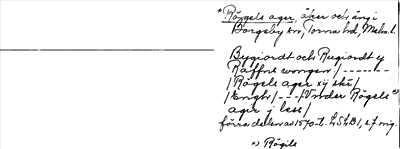 *Rögels ager, åker och äng i
Borgeby sn, Torna hd, Malm. l.
Bygiordt och Rugiordt y
Raffns wongen /--------
/ Rögels ager xij skí /
/ Engh / - - / Under Rögels ᵃ⁾
ager j less /
förra delen av 1570-t. LSLB 1, s. 7 orig.
ᵃ⁾ Rögils